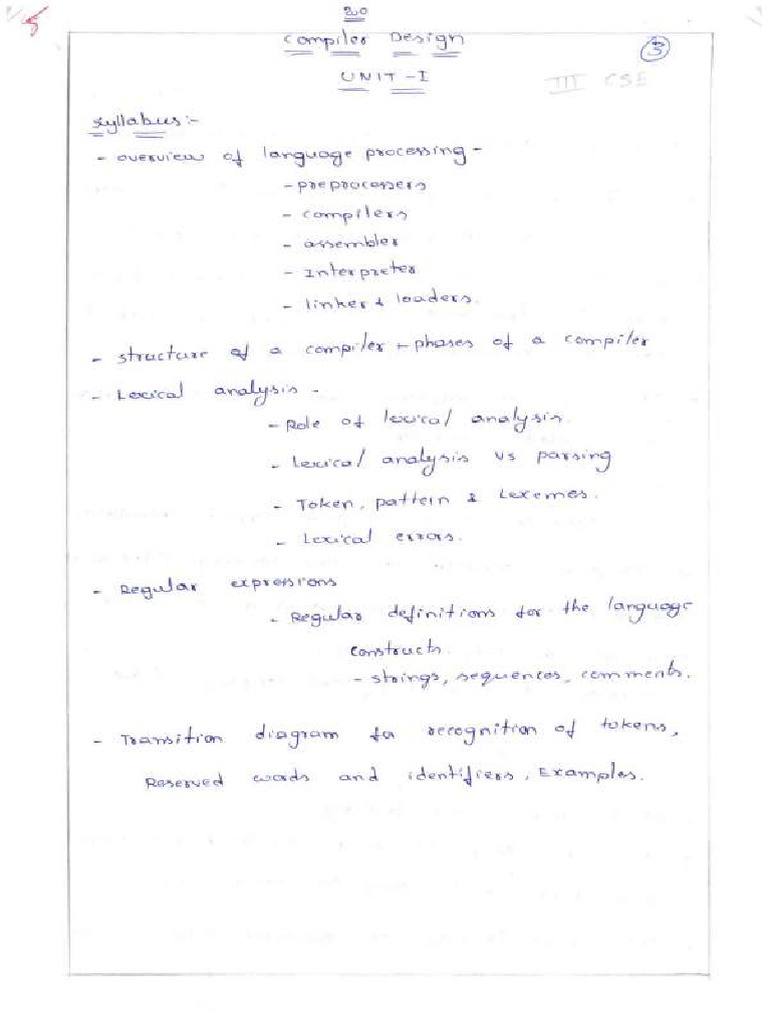 20
Compiler Design
3
UNIT - I
III CSE
Syllabus:-
- overview of language processing -
- preprocessers
- compilers
- assembler
- Interpreter
- linker & loaders.
- structure of a compiler - phases of a compiler
- Lexical analysis -
- Role of lexical analysis.
- lexical analysis vs parsing
- Token, pattern & Lexemes.
- Lexical errors.
- Regular expressions
- Regular definitions for the language
constructs.
- strings, sequences, comments.
- Transition diagram for recognition of tokens,
Reserved words and identifiers, Examples.